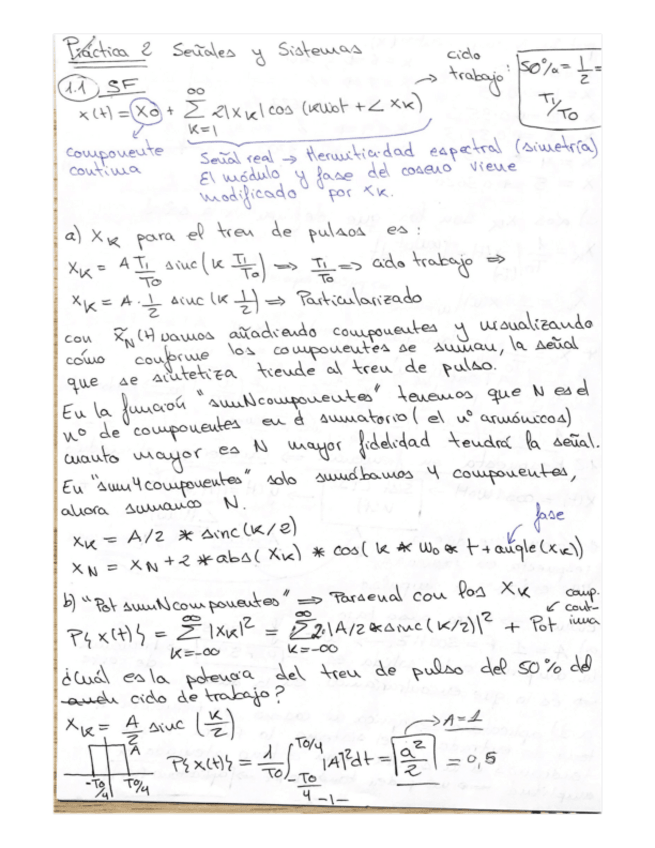 Práctica 2 Señales y Sistemas
ciclo trabajo: 50% = 1/2 = T1/T0
1.1 SF
x(t) = X0 + ∞ Σ K=1 2|XK| cos (kω0t + ∠XK)
componente continua
Señal real → Hermiticidad espectral (simetría)
El módulo y fase del coseno viene
modificado por XK.
a) XK para el tren de pulsos es:
XK = A T1/T0 sinc(K T1/T0) ⟹ T1/T0 ⟹ ciclo trabajo ⟹
XK = A · 1/2 sinc (K 1/2) ⟹ Particularizado
con x̃N(t) vamos añadiendo componentes y visualizando
cómo conforme los componentes se suman, la señal
que se sintetiza tiende al tren de pulso.
En la función "sumNcomponentes" tenemos que N es el
nº de componentes en el sumatorio (el nº armónicos)
cuanto mayor es N mayor fidelidad tendrá la señal.
En "sum4componentes" solo sumábamos 4 componentes,
ahora sumamos N.
fase
XK = A/2 * sinc(K/2)
XN = XN + 2 * abs(XK) * cos( K * W0 * t + angle(XK))
b) "Pot sumNcomponentes" ⟹ Parseval con los XK
comp. continua
P{x(t)} = ∞ Σ K=-∞ |XK|² = ∞ Σ K=-∞ 2·|A/2 * sinc(K/2)|² + Pot
¿Cuál es la potencia del tren de pulso del 50% del
ciclo de trabajo?
XK = A/2 sinc (K/2)
A=1
A
P{x(t)} = 1/T0 ∫ -T0/4 T0/4 |A|² dt = a²/2 = 0,5
-T0/4 T0/4
-1-